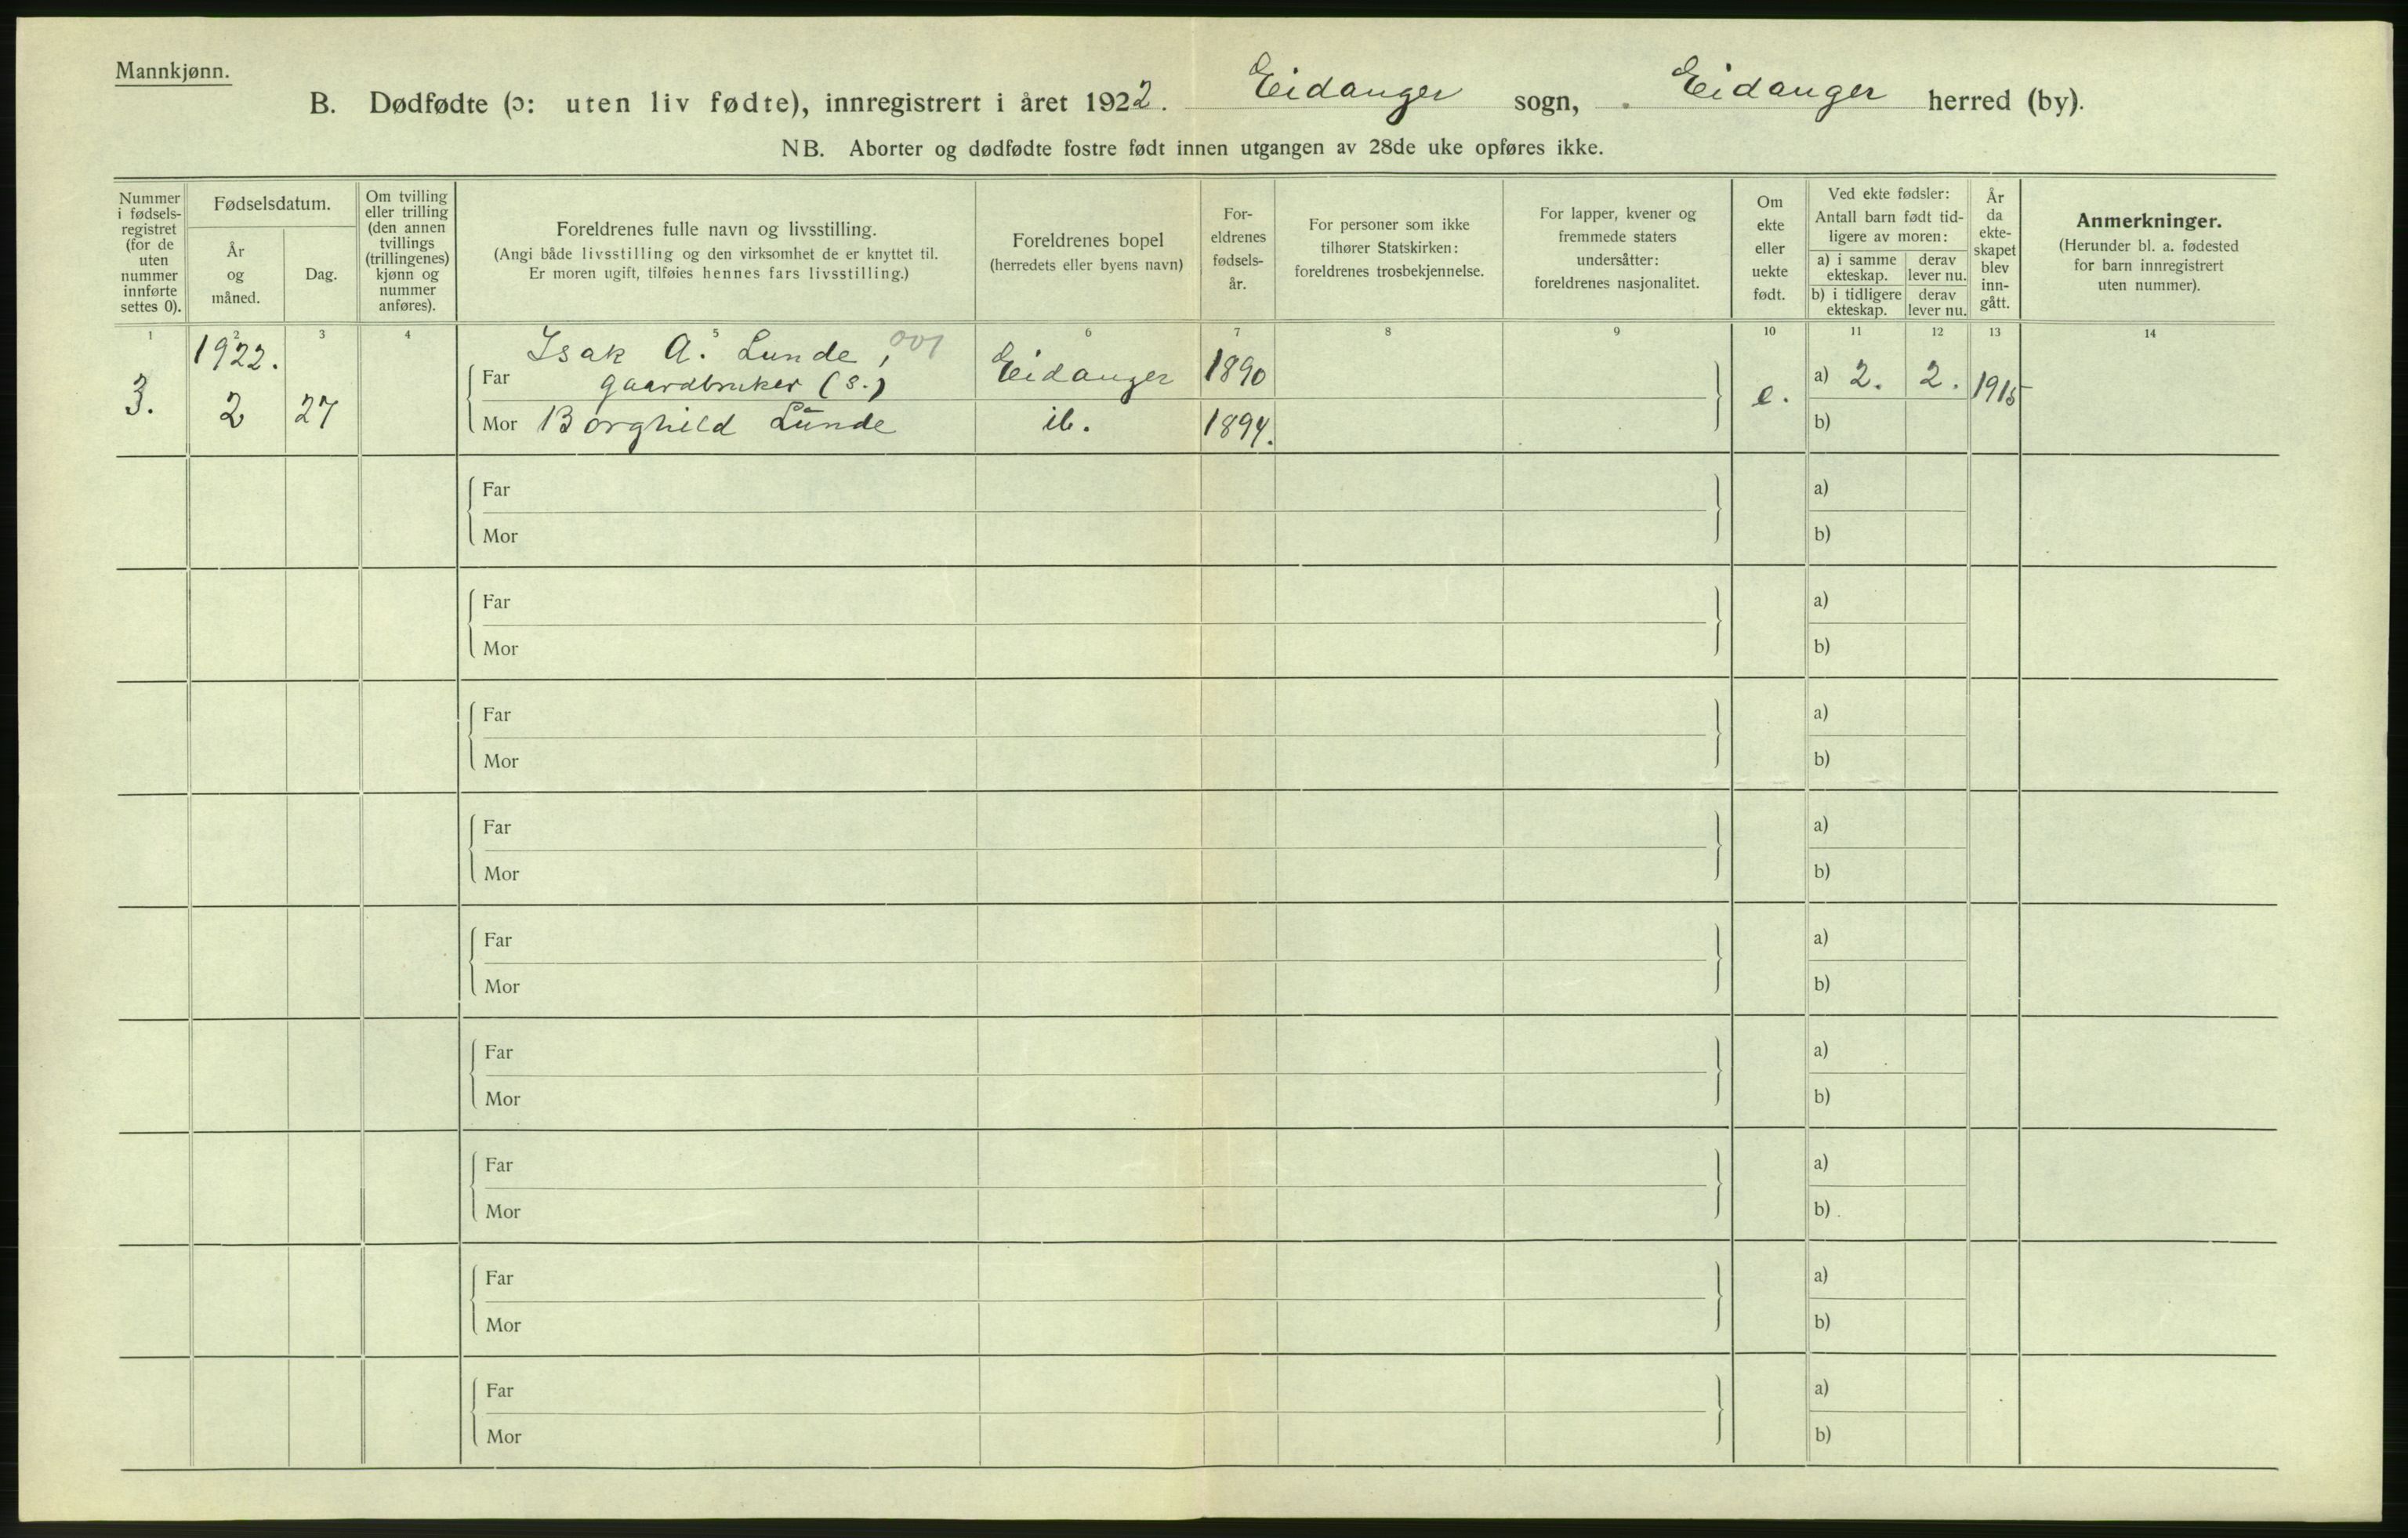 Mannkjønn.
B. Dødfødte (ɔ: uten liv fødte), innregistrert i året 1922. Eidanger sogn, Eidanger herred (by).
NB. Aborter og dødfødte fostre født innen utgangen av 28de uke opføres ikke.
Nummer i fødsels- registret (for de uten nummer innførte settes 0).
Fødselsdatum.
År og måned.
Dag.
Om tvilling eller trilling (den annen tvillings (trillingenes) kjønn og nummer anføres).
Foreldrenes fulle navn og livsstilling.
(Angi både livsstilling og den virksomhet de er knyttet til.
Er moren ugift, tilføies hennes fars livsstilling.)
Foreldrenes bopel
(herredets eller byens navn)
For- eldrenes fødsels- år.
For personer som ikke tilhører Statskirken: foreldrenes trosbekjennelse.
For lapper, kvener og fremmede staters undersåtter: foreldrenes nasjonalitet.
Om ekte eller uekte født.
Ved ekte fødsler:
Antall barn født tid- ligere av moren:
a) i samme ekteskap.
derav lever nu.
b) i tidligere ekteskap.
derav lever nu.
År da ekte- skapet blev inn- gått.
Anmerkninger.
(Herunder bl. a. fødested for barn innregistrert uten nummer).
1 2 3 4 5 6 7 8 9 10 11 12 13 14
3. 1922. 2 27
Far Isak A. Lunde, 001
gaardbruker (s.) Eidanger 1890
Mor Borghild Lunde ib. 1894.
e. a) 2. 2. 1915
b)
Far a)
Mor b)
Far a)
Mor b)
Far a)
Mor b)
Far a)
Mor b)
Far a)
Mor b)
Far a)
Mor b)
Far a)
Mor b)
Far a)
Mor b)
Far a)
Mor b)